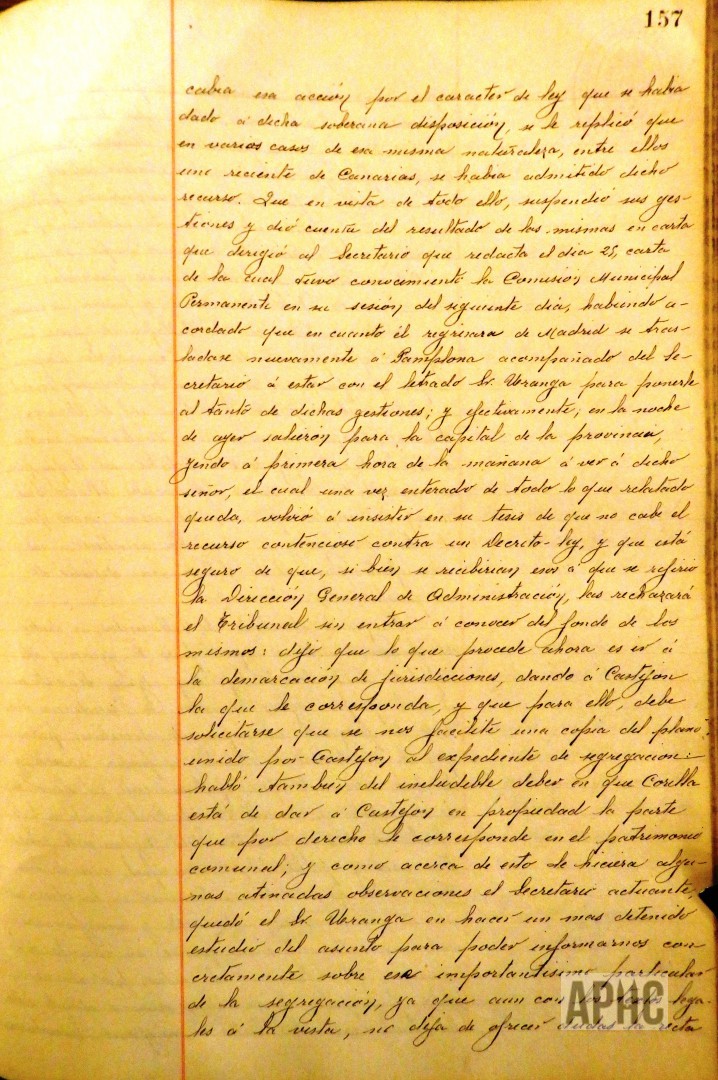 157
cabia esa acción por el caracter de ley que se habia
dado á dicha soberana disposición, se le replicó que
en varios casos de esa misma naturaleza, entre ellos
uno reciente de Canarias, se habia admitido dicho
recurso. Que en vista de todo ello, suspendió sus ges-
tiones y dió cuenta del resultado de las mismas en carta
que dirigió al Secretario que redacta el dia 25, carta
de la cual tuvo conocimiento la Comisión Municipal
Permanente en su sesión del siguiente dia, habiendo a-
cordado que en cuanto él regresara de Madrid se tras-
ladase nuevamente á Pamplona acompañado del Se-
cretario á estar con el letrado Sr. Uranga para ponerle
al tanto de dichas gestiones; y efectivamente, en la noche
de ayer salieron para la capital de la provincia,
yendo á primera hora de la mañana á ver á dicho
señor, el cual una vez enterado de todo lo que relatado
queda, volvió á insistir en su tesis de que no cabe el
recurso contencioso contra un Decreto-ley, y que está
seguro de que, si bien se recibirian esos á que se refirió
la Dirección General de Administración, las rechazará
el Tribunal sin entrar á conocer del fondo de los
mismos: dijo que lo que procede ahora es ir á
la demarcacion de jurisdicciones, dando á Castejon
la que le corresponda, y que para ello, debe
solicitarse que se nos facilite una copia del plano
unido por Castejon al expediente de segregacion:
habló tambien del ineludible deber en que Corella
está de dar á Castejon en propiedad la parte
que por derecho le corresponde en el patrimonio
comunal; y como acerca de esto le hiciera algu-
nas atinadas observaciones el Secretario actuante,
quedó el Sr. Uranga en hacer un mas detenido
estudio del asunto para poder informarnos con-
cretamente sobre ese importantisimo particular
de la segregación, ya que aun con los textos lega-
les á la vista, no deja de ofrecer dudas la recta
APHC